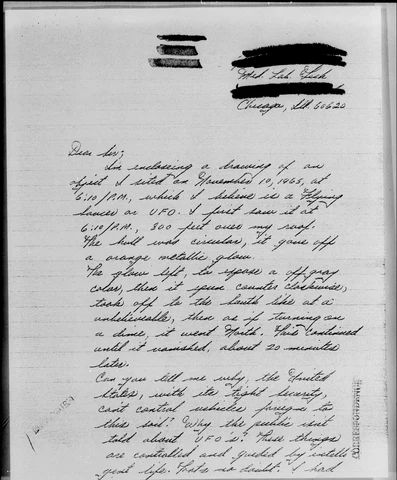 Med. Lab. Tech
Chicago, Ill. 60620
Dear Sir;
I'm enclosing a drawing of an
object I sited on November 10, 1965, at
6:10/P.M., which I believe is a Flying
Saucer or UFO. I first saw it at
6:10/P.M., 800 feet over my roof.
The hull was circular, it gave off
a orange metallic glow.
The glow left, to expose a off gray
color, then it spun counter clockwise,
took off to the South like at a
unbelieveable, then as if turning on
a dime, it went North. This continued
until it vanished, about 20 minutes
later.
Can you tell me why, the United
States, with its tight security,
cant control vehicles foreign to
this soil? Why the public isnt
told about UFO's? These things
are controlled and guided by intelli
gent life. That's no doubt. I had